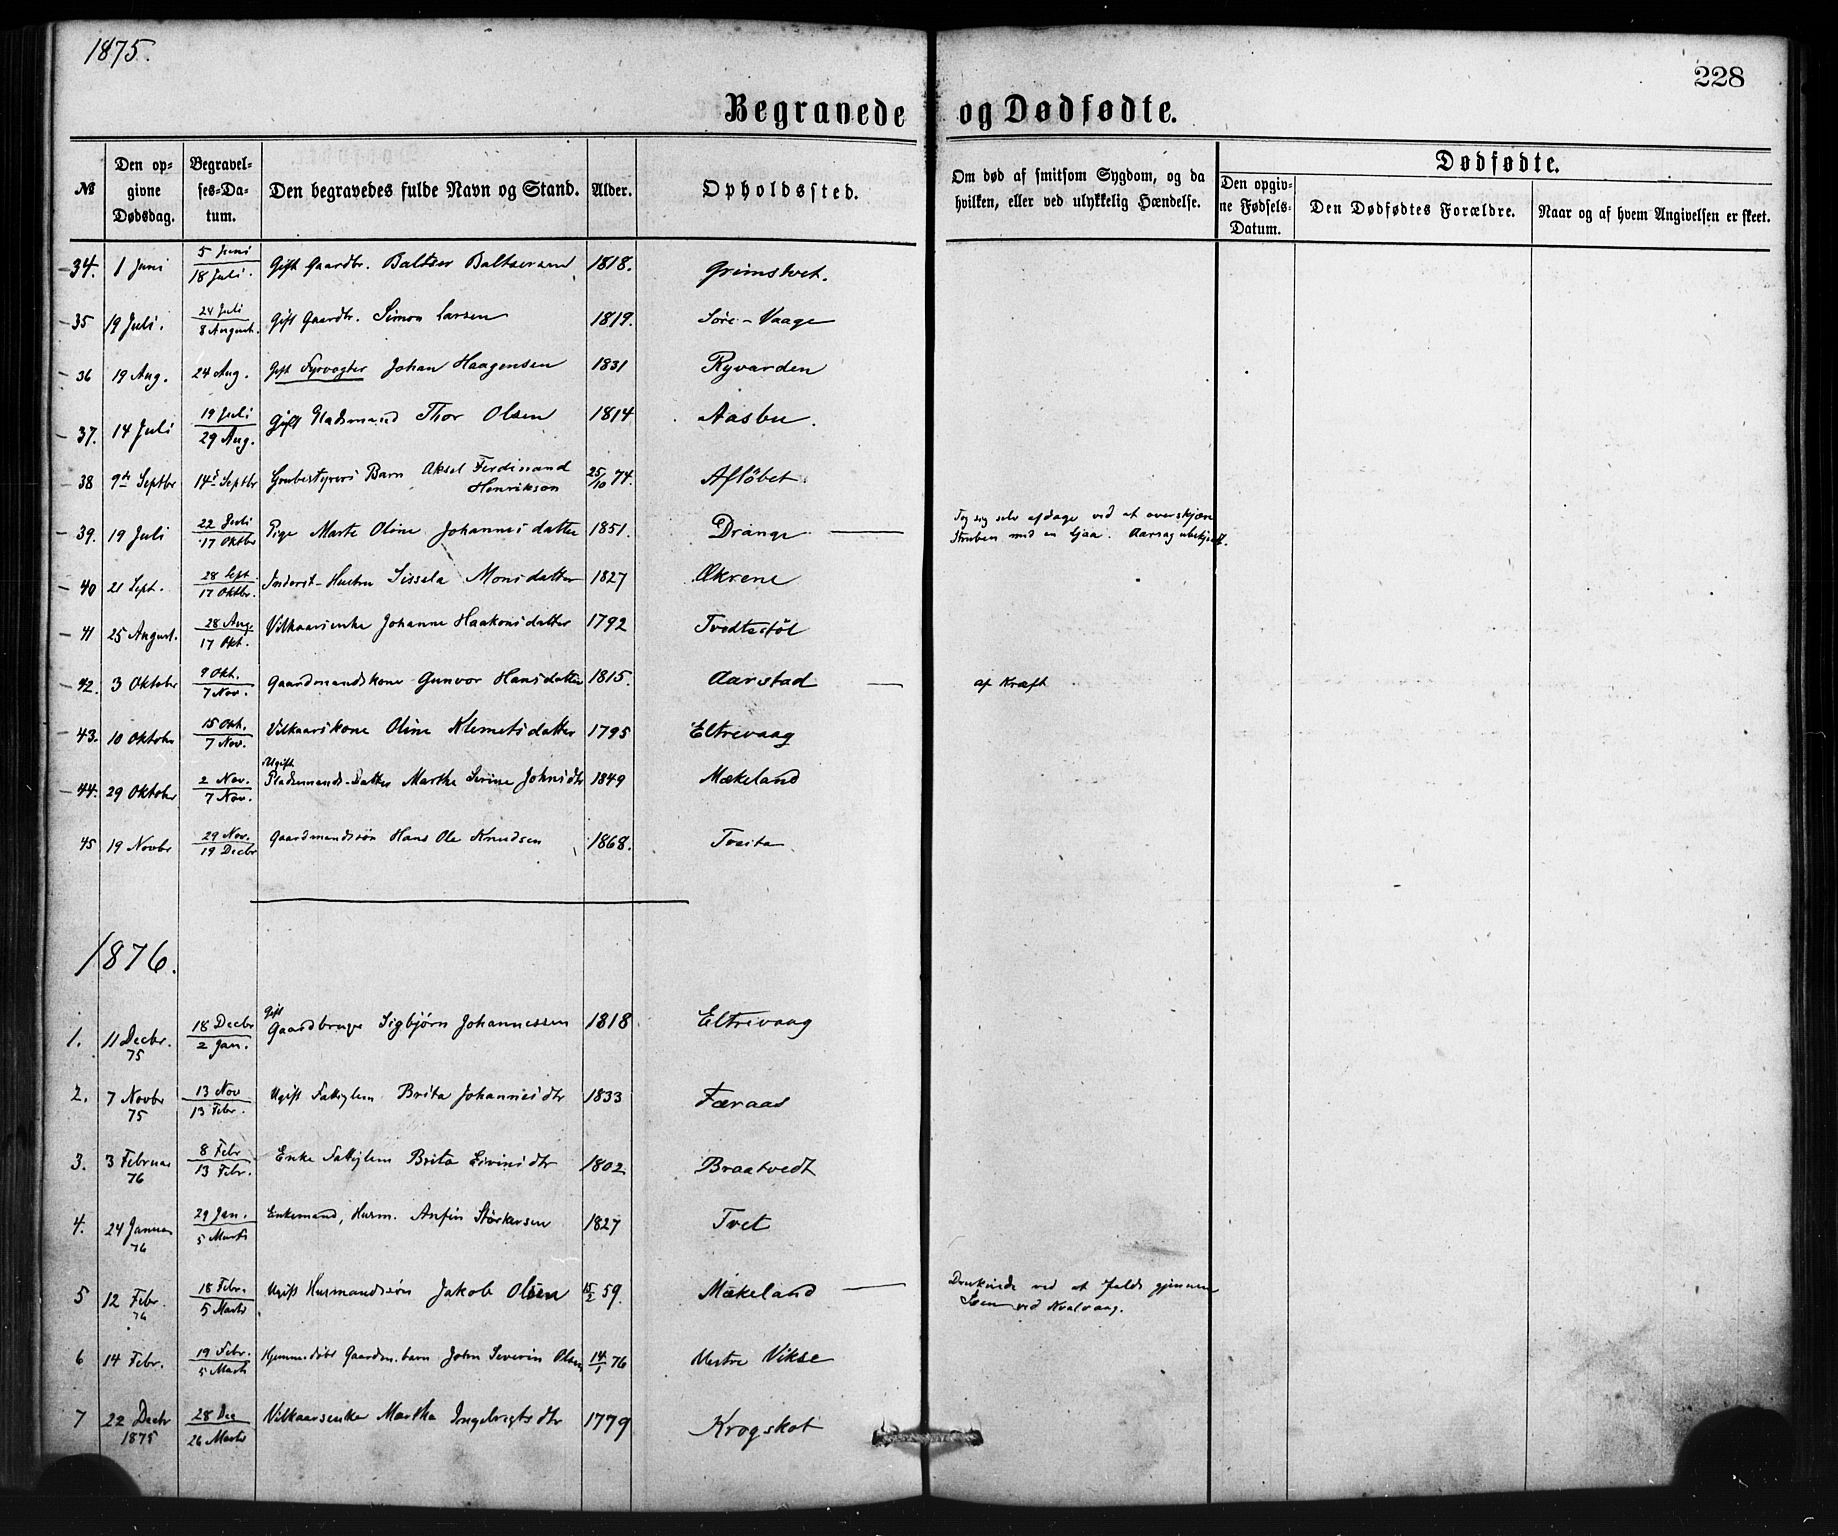 1875.
228
Begravede og Dødfødte.
№
Den op=
givne
Dødsdag.
Begravel=
ses=Da=
tum.
Den begravedes fulde Navn og Stand.
Alder.
Opholdssted.
Om død af smitsom Sygdom, og da
hvilken, eller ved ulykkelig Hændelse.
Dødfødte.
Den opgiv=
ne Fødsels=
Datum.
Den Dødfødtes Forældre.
Naar og af hvem Angivelsen er skeet.
34. 1 Juni 5 Juni / 18 Juli. Gift Gaardbr. Baltser 1818. Grimstvet.
35 19 Juli. 24 Juli / 8 August. Gift Gaardbr. Simon Larsen 1819. Søre-Vaage
36 19 Aug. 24 Aug. Gift Fyrvogter Johan Haagensen 1831 Ryvarden
37. 14 Juli 19 Juli / 29 Aug. Gift Pladsmand Thor Olsen 1814 Aasbu.
38 9de Septbr 14d Septbr Grubestyrers Barn Aksel Ferdinand
Henrikson 25/10 74. Afløbet
39. 19 Juli 22 Juli / 17 Oktbr Pige Marte Oline Johannesdatter 1851. Drange — Tog sig selv afdage ved at overskjære
Struben med en Ljaa. Aarsag ubekjendt.
40 21 Sept. 28 Sept / 17 Oktbr. Inderst-Hustru Sissela Monsdatter 1827 Økrene
41 25 August. 28 Aug. / 17 Okt. Vilkaarsenke Johanne Haakonsdatter 1792 Tvedtestøl
42. 3 Oktober 9 Okt. / 7 Nov. Gaardmandskone Gunvor Hansdatter 1815. Aarstad — af Kræft
43. 10 Oktober 15 Okt. / 7 Nov. Vilkaarskone Oline Klemetsdatter 1795 Eltrevaag
44. 29 Oktober 2 Nov. / 7 Nov. Ugift Pladsmands-Datter Marthe Serine Johnsdtr 1849 Mækeland
45 19 Novbr 29 Nov. / 19 Decbr Gaardmandssøn Hans Ole Knudsen 1868. Tveita
1876.
1. 11 Decbr. 75 18 Decbr / 2 Jan. Gift Gaardbruger Sigbjørn Johannessen 1818 Eltrevaag
2. 7 Novbr 75 13 Nov / 13 Febr. Ugift Fattiglem Brita Johannesdtr 1833 Færaas
3. 3 Februar 76 8 Febr / 13 Febr. Enke Fattiglem Brita Eivindsdtr 1802 Braatvedt
4. 24 Januar 76 29 Jan. / 5 Marts Enkemand, Husm. Anfin Størkersen 1827 Tvet
5 12 Febr. 76 18 Febr. / 5 Marts Ugift Husmandssøn Jakob Olsen 15/2 59. Mækeland — Druknede ved at falde gjennem
Isen ved Kvalvaag.
6 14 Febr. 19 Febr. / 5 Marts Hjemmedøbt Gaardm. barn John Severin Olsen 14/1 76 Vestre Vikse
7 22 Decbr 1875 28 Dec / 26 Marts Vilkaarsenke Martha Ingebrigtsdtr 1779 Krogskot